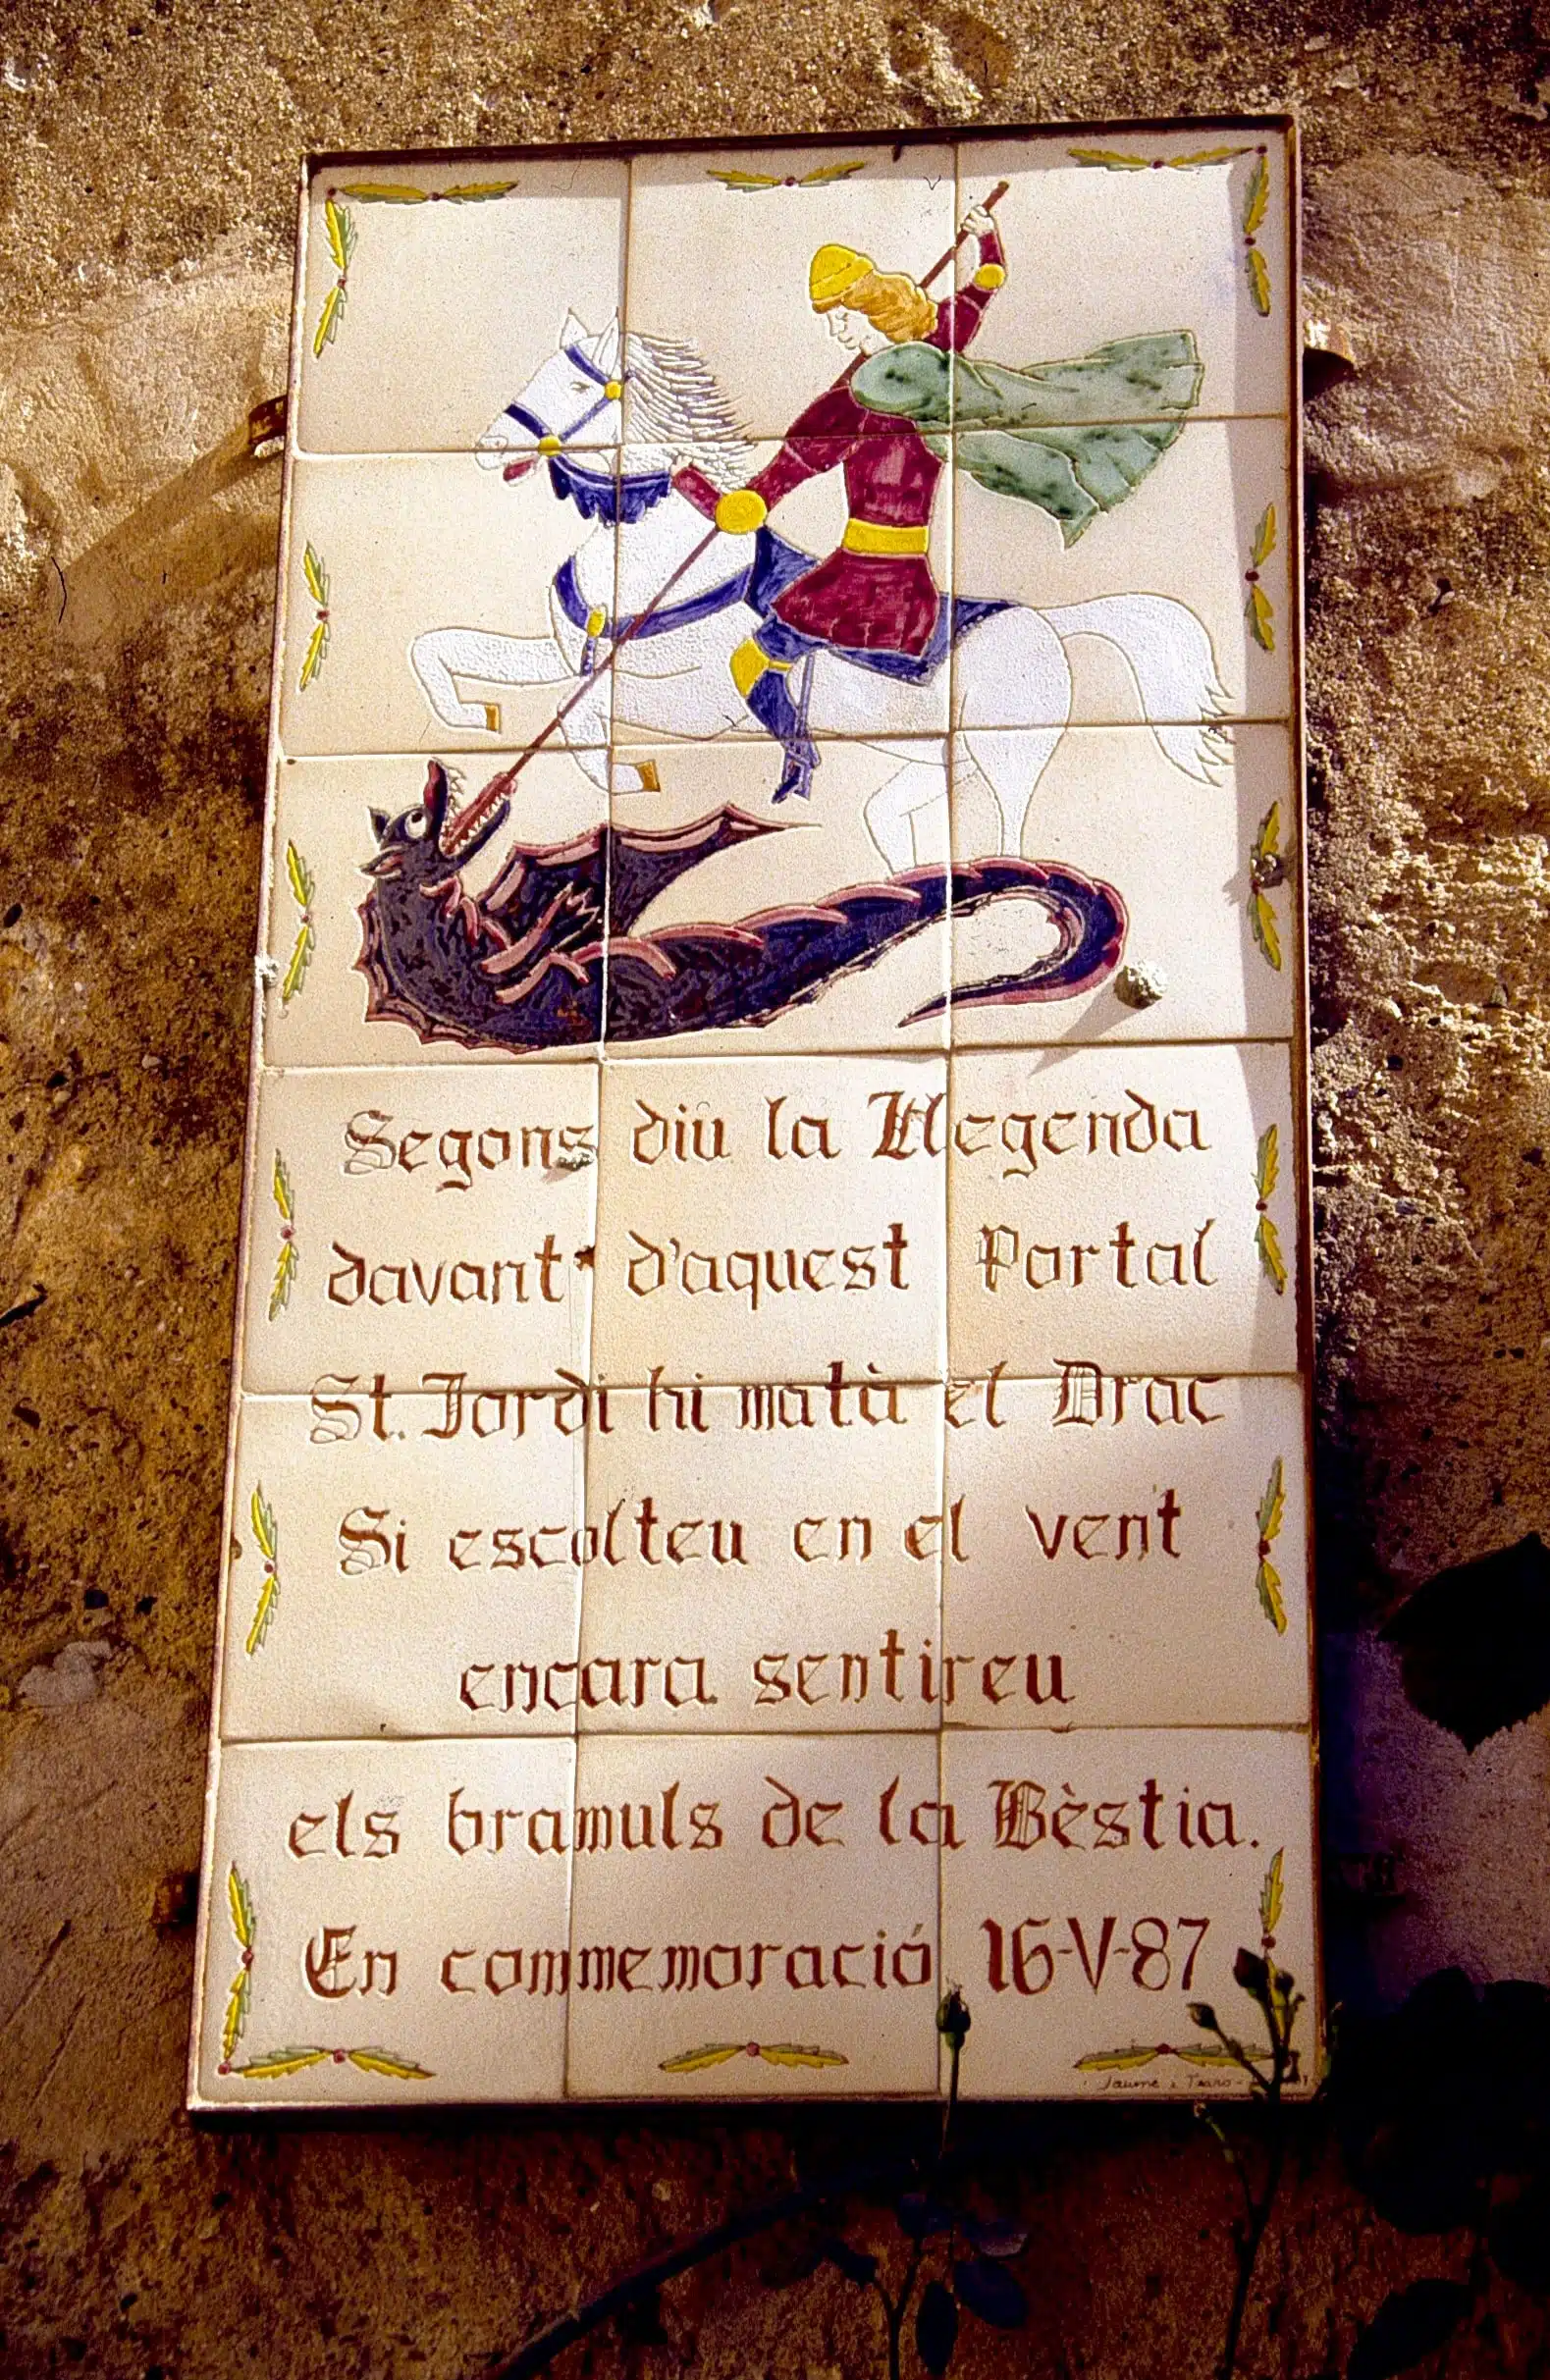 Segons diu la Llegenda
davant d'aquest Portal
St. Jordi hi matà el Drac
Si escolteu en el vent
encara sentireu
els bramuls de la Bèstia.
En commemoració 16-V-87